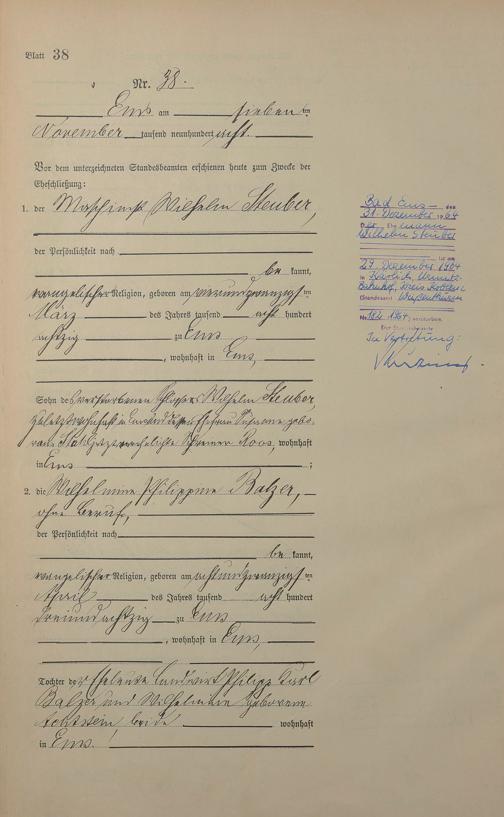 Blatt 38
Nr. 38.
Ems am sieben ten
November tausend neunhundert acht.
Vor dem unterzeichneten Standesbeamten erschienen heute zum Zwecke der
Eheschließung:
1. der Maschinist Wilhelm Steuber,
der Persönlichkeit nach
be kannt,
evangelischer Religion, geboren am
März des Jahres tausend acht hundert
achtzig zu Ems
, wohnhaft in Ems,
Sohn des verstorbenen Wilhelm Steuber,
zuletzt wohnhaft in Ems und dessen Ehefrau
jetzt verehelichte Roos, wohnhaft
in Ems ;
2. die Wilhelmine Philippine Balzer,
ohne Beruf,
der Persönlichkeit nach
be kannt,
evangelischer Religion, geboren am achtundzwanzigs ten
April des Jahres tausend acht hundert
dreiundachtzig zu Ems
, wohnhaft in Ems,
Tochter der Eheleute Landwirt Philipp Karl
Balzer und Wilhelmine geborene
beide wohnhaft
in Ems.
Bad Ems den
31. Dezember 1964
Der Ehemann
Wilhelm Steuber
ist am
29. Dezember 1964
in
Bahnhof, Kreis Koblenz
Standesamt
Nr. 1964 verstorben.
Der Standesbeamte
In Vertretung: